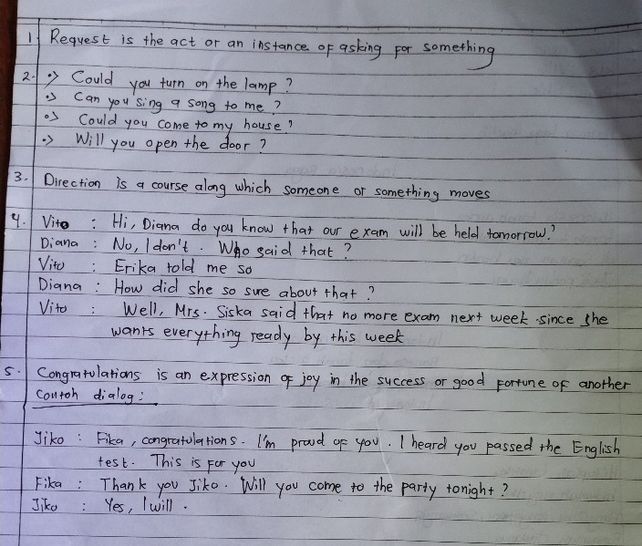 1. Request is the act or an instance of asking for something
2. •> Could you turn on the lamp ?
•> Can you sing a song to me ?
•> Could you come to my house ?
•> Will you open the door ?
3. Direction is a course along which someone or something moves
4. Vito : Hi, Diana do you know that our exam will be held tomorrow ?
Diana : No, I don't. Who said that ?
Vito : Erika told me so
Diana : How did she so sure about that ?
Vito : Well, Mrs. Siska said that no more exam next week since she
wants everything ready by this week
5. Congratulations is an expression of joy in the success or good fortune of another
Contoh dialog :
Jiko : Fika, congratulations. I'm proud of you. I heard you passed the English
test. This is for you
Fika : Thank you Jiko. Will you come to the party tonight ?
Jiko : Yes, I will.